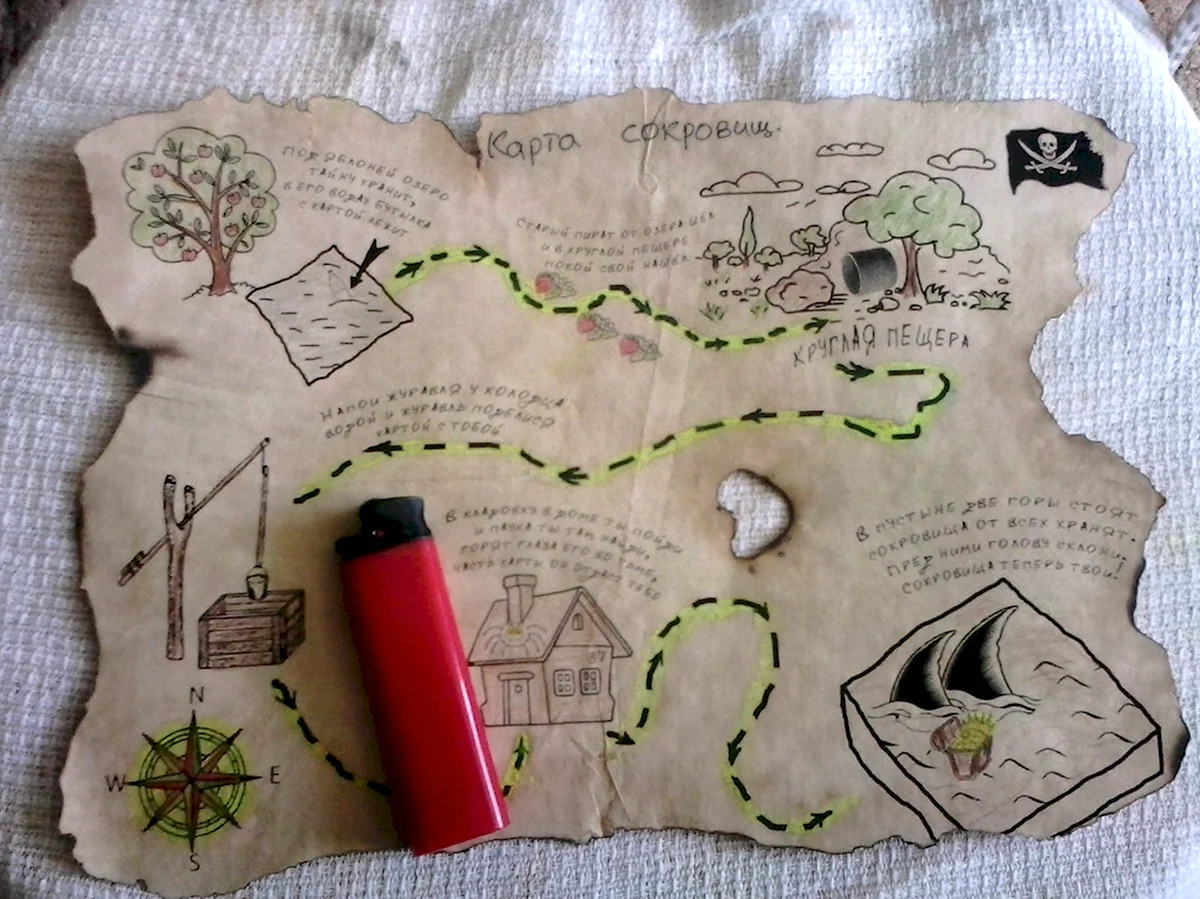 Карта сокровищ.
ПОД ЯБЛОНЕЙ ОЗЕРО
ТАЙНУ ХРАНИТ,
В ЕГО ВОДАХ БУТЫЛКА
С КАРТОЙ ЛЕЖИТ
СТАРЫЙ ПИРАТ ОТ ОЗЕРА ШЁЛ
И В КРУГЛОЙ ПЕЩЕРЕ
ПОКОЙ СВОЙ НАШЁЛ
КРУГЛАЯ ПЕЩЕРА
НАПОИ ЖУРАВЛЯ У КОЛОДЦА
ВОДОЙ И ЖУРАВЛЬ ПОДЕЛИСЯ
КАРТОЙ С ТОБОЙ
В КЛАДОВКУ В ДОМЕ ТЫ ПОЙДИ
И ПАУКА ТЫ ТАМ НАЙДИ,
ГОРЯТ ГЛАЗА ЕГО ВО ТЬМЕ,
ЧАСТЬ КАРТЫ ОН ОТДАСТ ТЕБЕ
В ПУСТЫНЕ ДВЕ ГОРЫ СТОЯТ
СОКРОВИЩА ОТ ВСЕХ ХРАНЯТ.
ПРЕД НИМИ ГОЛОВУ СКЛОНИ,
СОКРОВИЩА ТЕПЕРЬ ТВОИ!
37
N
W E
S